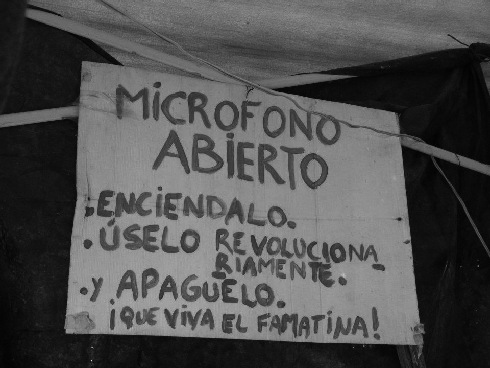 MiCROFONO
ABiERTO
. ENCiENDALO.
. ÚSELO REVOLUCiONA_
RiAMENTE.
. y APAGUELO.
¡QUE VIVA EL FAMATINA!